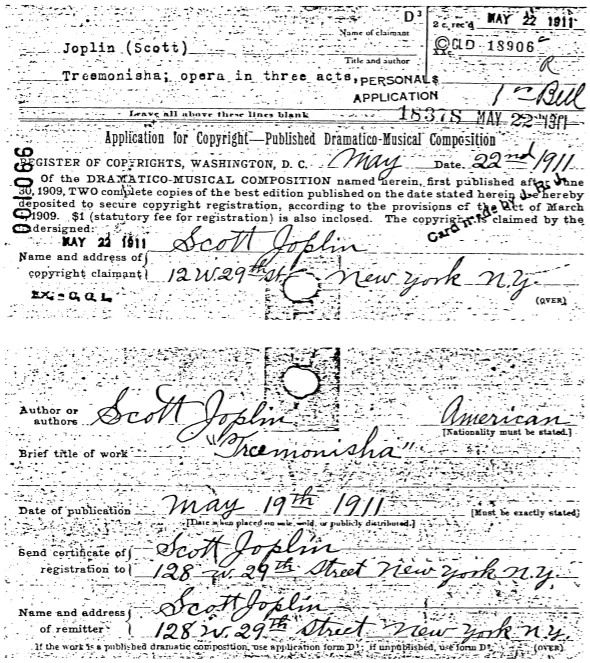 D³
2 c. rec'd MAY 22 1911
Name of claimant
Joplin (Scott)
© CLD 18906
XXc.
Title and author
R
Treemonisha; opera in three acts,
PERSONALS
APPLICATION
Bell
Leave all above these lines blank
18378 MAY 22 1911
Application for Copyright—Published Dramatico-Musical Composition
REGISTER OF COPYRIGHTS, WASHINGTON, D. C. May Date. 22nd 1911
Of the DRAMATICO-MUSICAL COMPOSITION named herein, first published after June
30, 1909, TWO complete copies of the best edition published on the date stated herein are hereby
deposited to secure copyright registration, according to the provisions of the Act of March
4, 1909. $1 (statutory fee for registration) is also inclosed. The copyright is claimed by the
undersigned:
001066
Card made by J. R. Jr.
MAY 22 1911
Scott Joplin
Name and address of
copyright claimant
12 W. 29th St New York N.Y.
(OVER)
Author or
authors
Scott Joplin American
[Nationality must be stated.]
Brief title of work "Treemonisha"
Date of publication May 19th 1911 [Must be exactly stated]
[Date when placed on sale, sold, or publicly distributed.]
Send certificate of Scott Joplin
registration to 128 W. 29th Street New York N.Y.
Name and address Scott Joplin
of remitter 128 W. 29th Street New York N.Y.
If the work is a published dramatic composition, use application form D¹; if unpublished, use form D². (OVER)